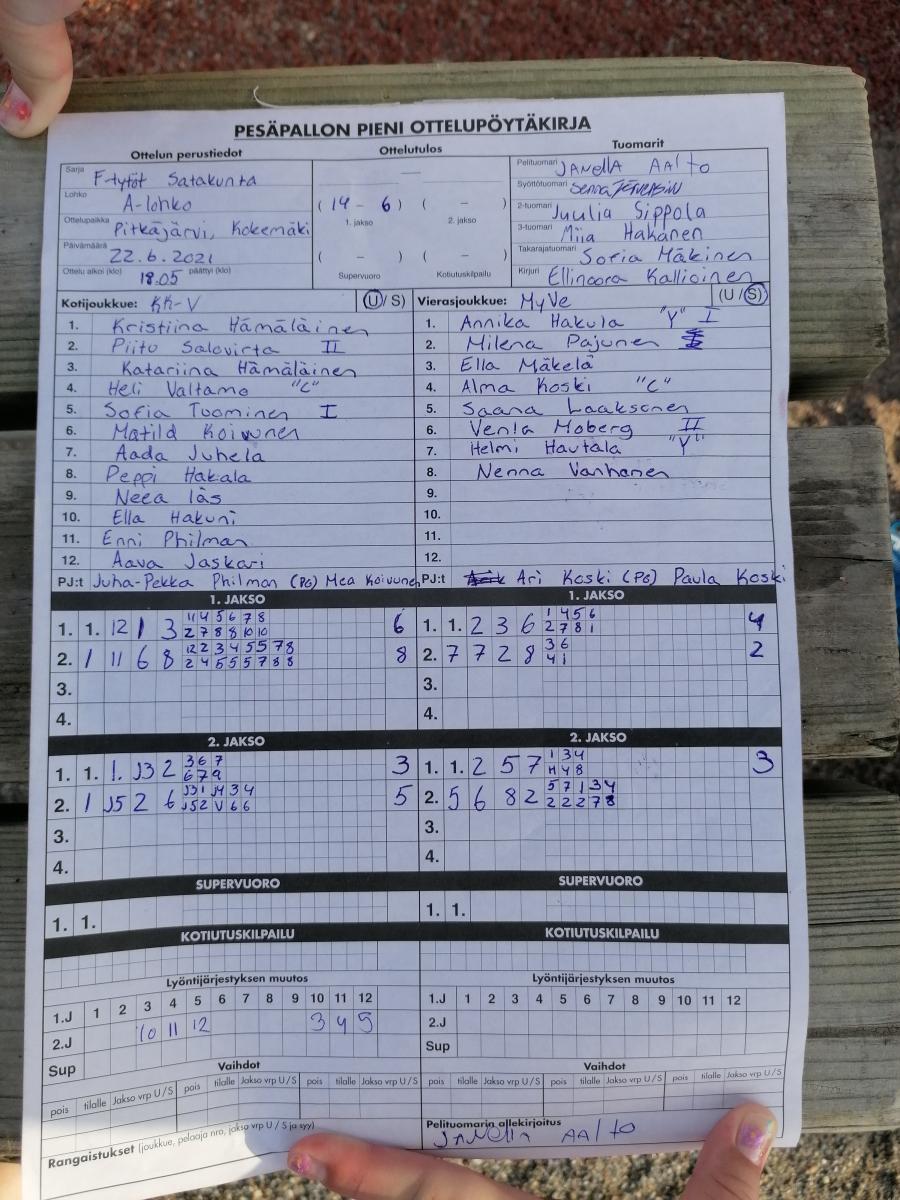 PESÄPALLON PIENI OTTELUPÖYTÄKIRJA
Ottelun perustiedot Ottelutulos Tuomarit
Sarja F-tytöt Satakunta
Lohko A-lohko
Ottelupaikka Pitkäjärvi, Kokemäki
Päivämäärä 22.6.2021
Ottelu alkoi (klo) 18.05 päättyi (klo)
—
(14 - 6) ( - )
1. jakso 2. jakso
( - ) ( - )
Supervuoro Kotiutuskilpailu
Pelituomari JANELLA AALTO
Syöttötuomari Senna
2-tuomari Juulia Sippola
3-tuomari Miia Hakanen
Takarajatuomari Sofia Mäkinen
Kirjuri Ellinoora Kallioinen
Kotijoukkue: KK-V (U/S)
1. Kristiina Hämäläinen
2. Piito Salovirta II
3. Katariina Hämäläinen
4. Heli Valtamo "C"
5. Sofia Tuominen I
6. Matild Koivunen
7. Aada Juhela
8. Peppi Hakala
9. Neea Iäs
10. Ella Hakuni
11. Enni Philman
12. Aava Jaskari
PJ:t Juha-Pekka Philman (PG) Mea Koivunen
Vierasjoukkue: MyVe (U/S)
1. Annika Hakula "Y" I
2. Milena Pajunen
3. Ella Mäkelä
4. Alma Koski "C"
5. Saana Laaksonen
6. Venla Moberg II
7. Helmi Hautala "Y"
8. Nenna Vanhanen
9.
10.
11.
12.
PJ:t Ari Koski (PG) Paula Koski
1. JAKSO
1. 1. 12 1 3 11 4 5 6 7 8 6
2 7 8 8 10 10
2. 1 11 6 8 12 2 3 4 5 5 7 8 8
2 4 5 5 5 7 8 8
3.
4.
1. JAKSO
1. 1. 2 3 6 1 4 5 6 4
2 7 8 1
2. 7 7 2 8 3 6 2
4 1
3.
4.
2. JAKSO
1. 1. 1. J3 2 3 6 7 3
6 7 9
2. 1 J5 2 6 J31 J4 3 4 5
J52 V 6 6
3.
4.
2. JAKSO
1. 1. 2 5 7 1 3 4 3
4 8
2. 5 6 8 2 5 7 1 3 4
2 2 2 7 8
3.
4.
SUPERVUORO
1. 1.
SUPERVUORO
1. 1.
KOTIUTUSKILPAILU
KOTIUTUSKILPAILU
Lyöntijärjestyksen muutos
1.J 1 2 3 4 5 6 7 8 9 10 11 12
2.J 10 11 12 3 4 5
Sup
Lyöntijärjestyksen muutos
1.J 1 2 3 4 5 6 7 8 9 10 11 12
2.J
Sup
Vaihdot
pois tilalle Jakso vrp U/S pois tilalle Jakso vrp U/S pois tilalle Jakso vrp U/S
Vaihdot
pois tilalle Jakso vrp U/S pois tilalle Jakso vrp U/S pois tilalle Jakso vrp U/S
Rangaistukset (joukkue, pelaaja nro, jakso vrp U/S ja syy)
Pelituomarin allekirjoitus
JANELLA AALTO